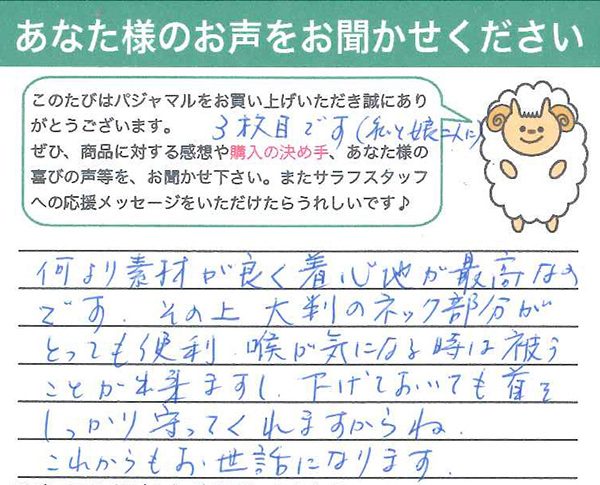 あなた様のお声をお聞かせください
このたびはパジャマルをお買い上げいただき誠にあり
がとうございます。 3枚目です(私と娘二人に)
ぜひ、商品に対する感想や購入の決め手、あなた様の
喜びの声等を、お聞かせ下さい。またサラフスタッフ
への応援メッセージをいただけたらうれしいです♪
何より素材が良く着心地が最高なの
です。その上 大判のネック部分が
とっても便利.喉が気になる時は被う
ことが出来ますし.下げておいても首を
しっかり守ってくれますからね.
これからもお世話になります.